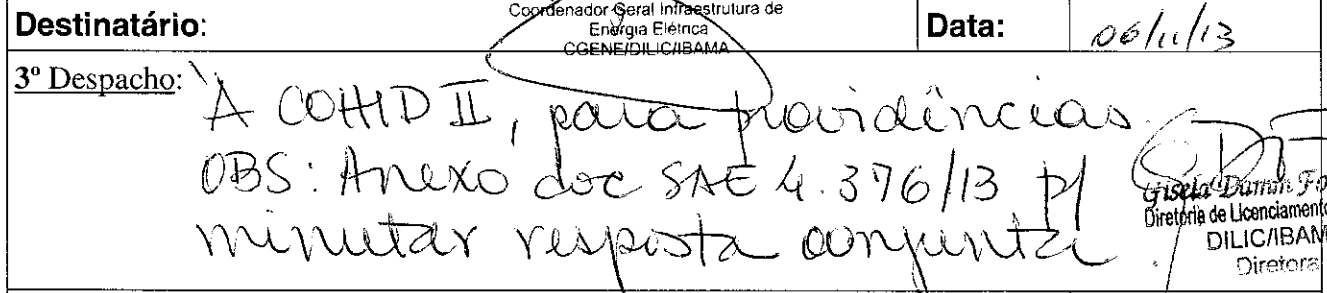 Destinatário:
Coordenador Geral Infraestrutura de
Energia Elétrica
CGENE/DILIC/IBAMA
Data:
06/11/13
3º Despacho:
À COHID II, para providências.
OBS: Anexo doc SAE 4.376/13 p/
minutar resposta conjunta.
Gisela Damm Fo
Diretoria de Licenciamento
DILIC/IBAM
Diretora